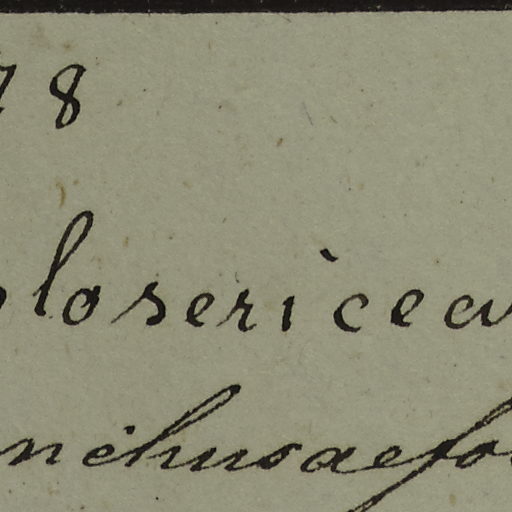 78
olosericea
nchusaefo